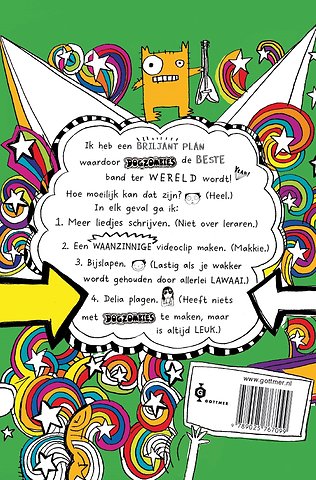 Ik heb een BRILJANT PLAN
waardoor DOGZOMBIES de BESTE
band ter WERELD wordt! YEAH!
Hoe moeilijk kan dat zijn? (Heel.)
In elk geval ga ik:
1. Meer liedjes schrijven. (Niet over leraren.)
2. Een WAANZINNIGE videoclip maken. (Makkie.)
3. Bijslapen. (Lastig als je wakker
wordt gehouden door allerlei LAWAAI.)
4. Delia plagen. (Heeft niets
met DOGZOMBIES te maken, maar
is altijd LEUK.)
www.gottmer.nl
GOTTMER
9 789025 767099